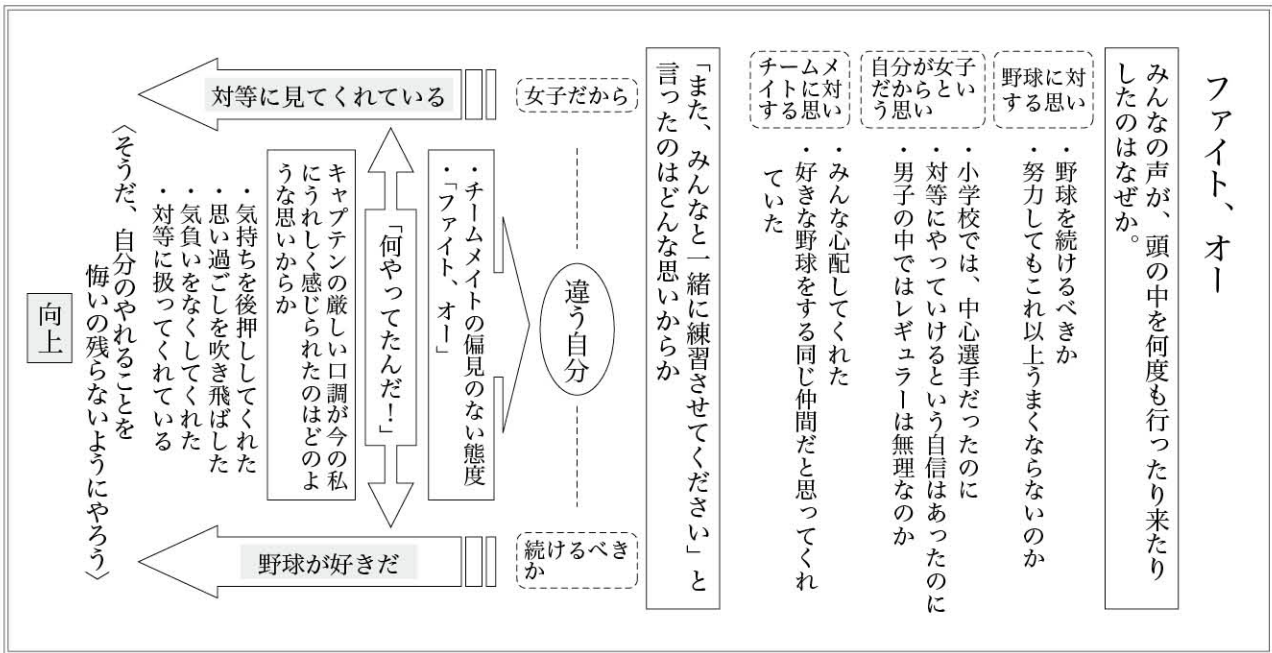 ファイト、オー
みんなの声が、頭の中を何度も行ったり来たり
したのはなぜか。
野球に対
する思い
・野球を続けるべきか
・努力してもこれ以上うまくならないのか
自分が女子
だからとい
う思い
・小学校では、中心選手だったのに
・対等にやっていけるという自信はあったのに
・男子の中ではレギュラーは無理なのか
チームメ
イトに対
する思い
・みんな心配してくれた
・好きな野球をする同じ仲間だと思ってくれ
ていた
「また、みんなと一緒に練習させてください」と
言ったのはどんな思いからか
女子だから
違う自分
続けるべき
か
・チームメイトの偏見のない態度
・「ファイト、オー」
「何やってたんだ！」
対等に見てくれている
野球が好きだ
キャプテンの厳しい口調が今の私
にうれしく感じられたのはどのよ
うな思いからか
・気持ちを後押ししてくれた
・思い過ごしを吹き飛ばした
・気負いをなくしてくれた
・対等に扱ってくれている
〈そうだ、自分のやれることを
悔いの残らないようにやろう〉
向上